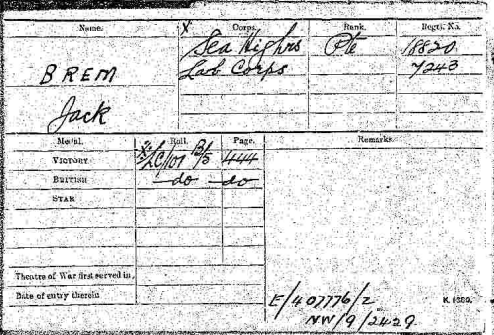 Name. X Corps. Rank. Regtl. No.
BREM Sea Highrs Pte 18820
Jack Lab Corps 7243
Medal. Roll. Page. Remarks.
VICTORY LC/101 B5 444
BRITISH do do
STAR
Theatre of War first served in
Date of entry therein
K. 1380.
E/407776/2
NW/9/2429